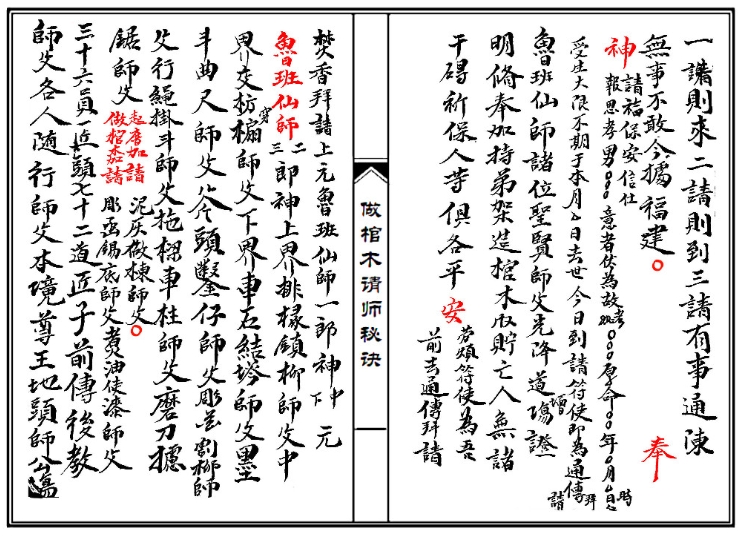 一請則來二請則到三請有事通陳
無事不敢今據福建○ 奉
神 請福保安信仕
報恩孝男○○○意者伏為故考妣○○○原命○○年○月○日○時
受生大限不期于本月○日去世今日到請符使即為通傳拜請
魯班仙師諸位聖賢師父光降道場證
明修奉加持弟架造棺木收貯亡人無諸
干碍祈保人等俱各平安
勞煩符使為吾
前去通傳拜請
做棺木请师秘诀
焚香拜請上元魯班仙師一郎神中下元
魯班仙師二三郎神上界排椽鎮柳師父中
界交枋穿楄師父下界車石結塔師父墨
斗曲尺師父斧頭鑿仔師父彫花割柳師
父行繩掛斗師父拖樑車柱師父磨刀
鋸師父 起厝加請 泥灰做棟師父○
做棺木加請 彫函錫底師父煮油使漆師父
三十六員匠頭七十二道匠子前傳後教
師父各人随行師父本境尊王地頭師公